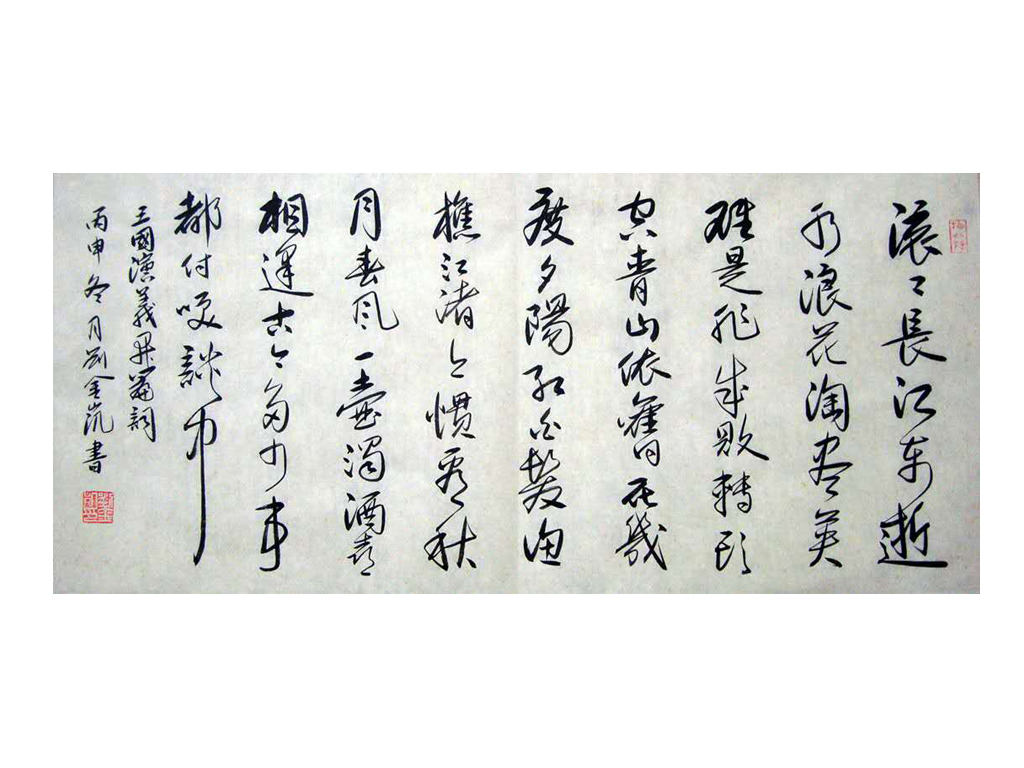 滚〻長江东逝
水浪花淘尽英
雄是非成敗轉头
空青山依舊在幾
度夕陽红白髮渔
樵江渚上惯看秋
月春风一壶濁酒喜
相逢古今多少事
都付笑談中
三國演義開篇詞
丙申冬月劉金岚書